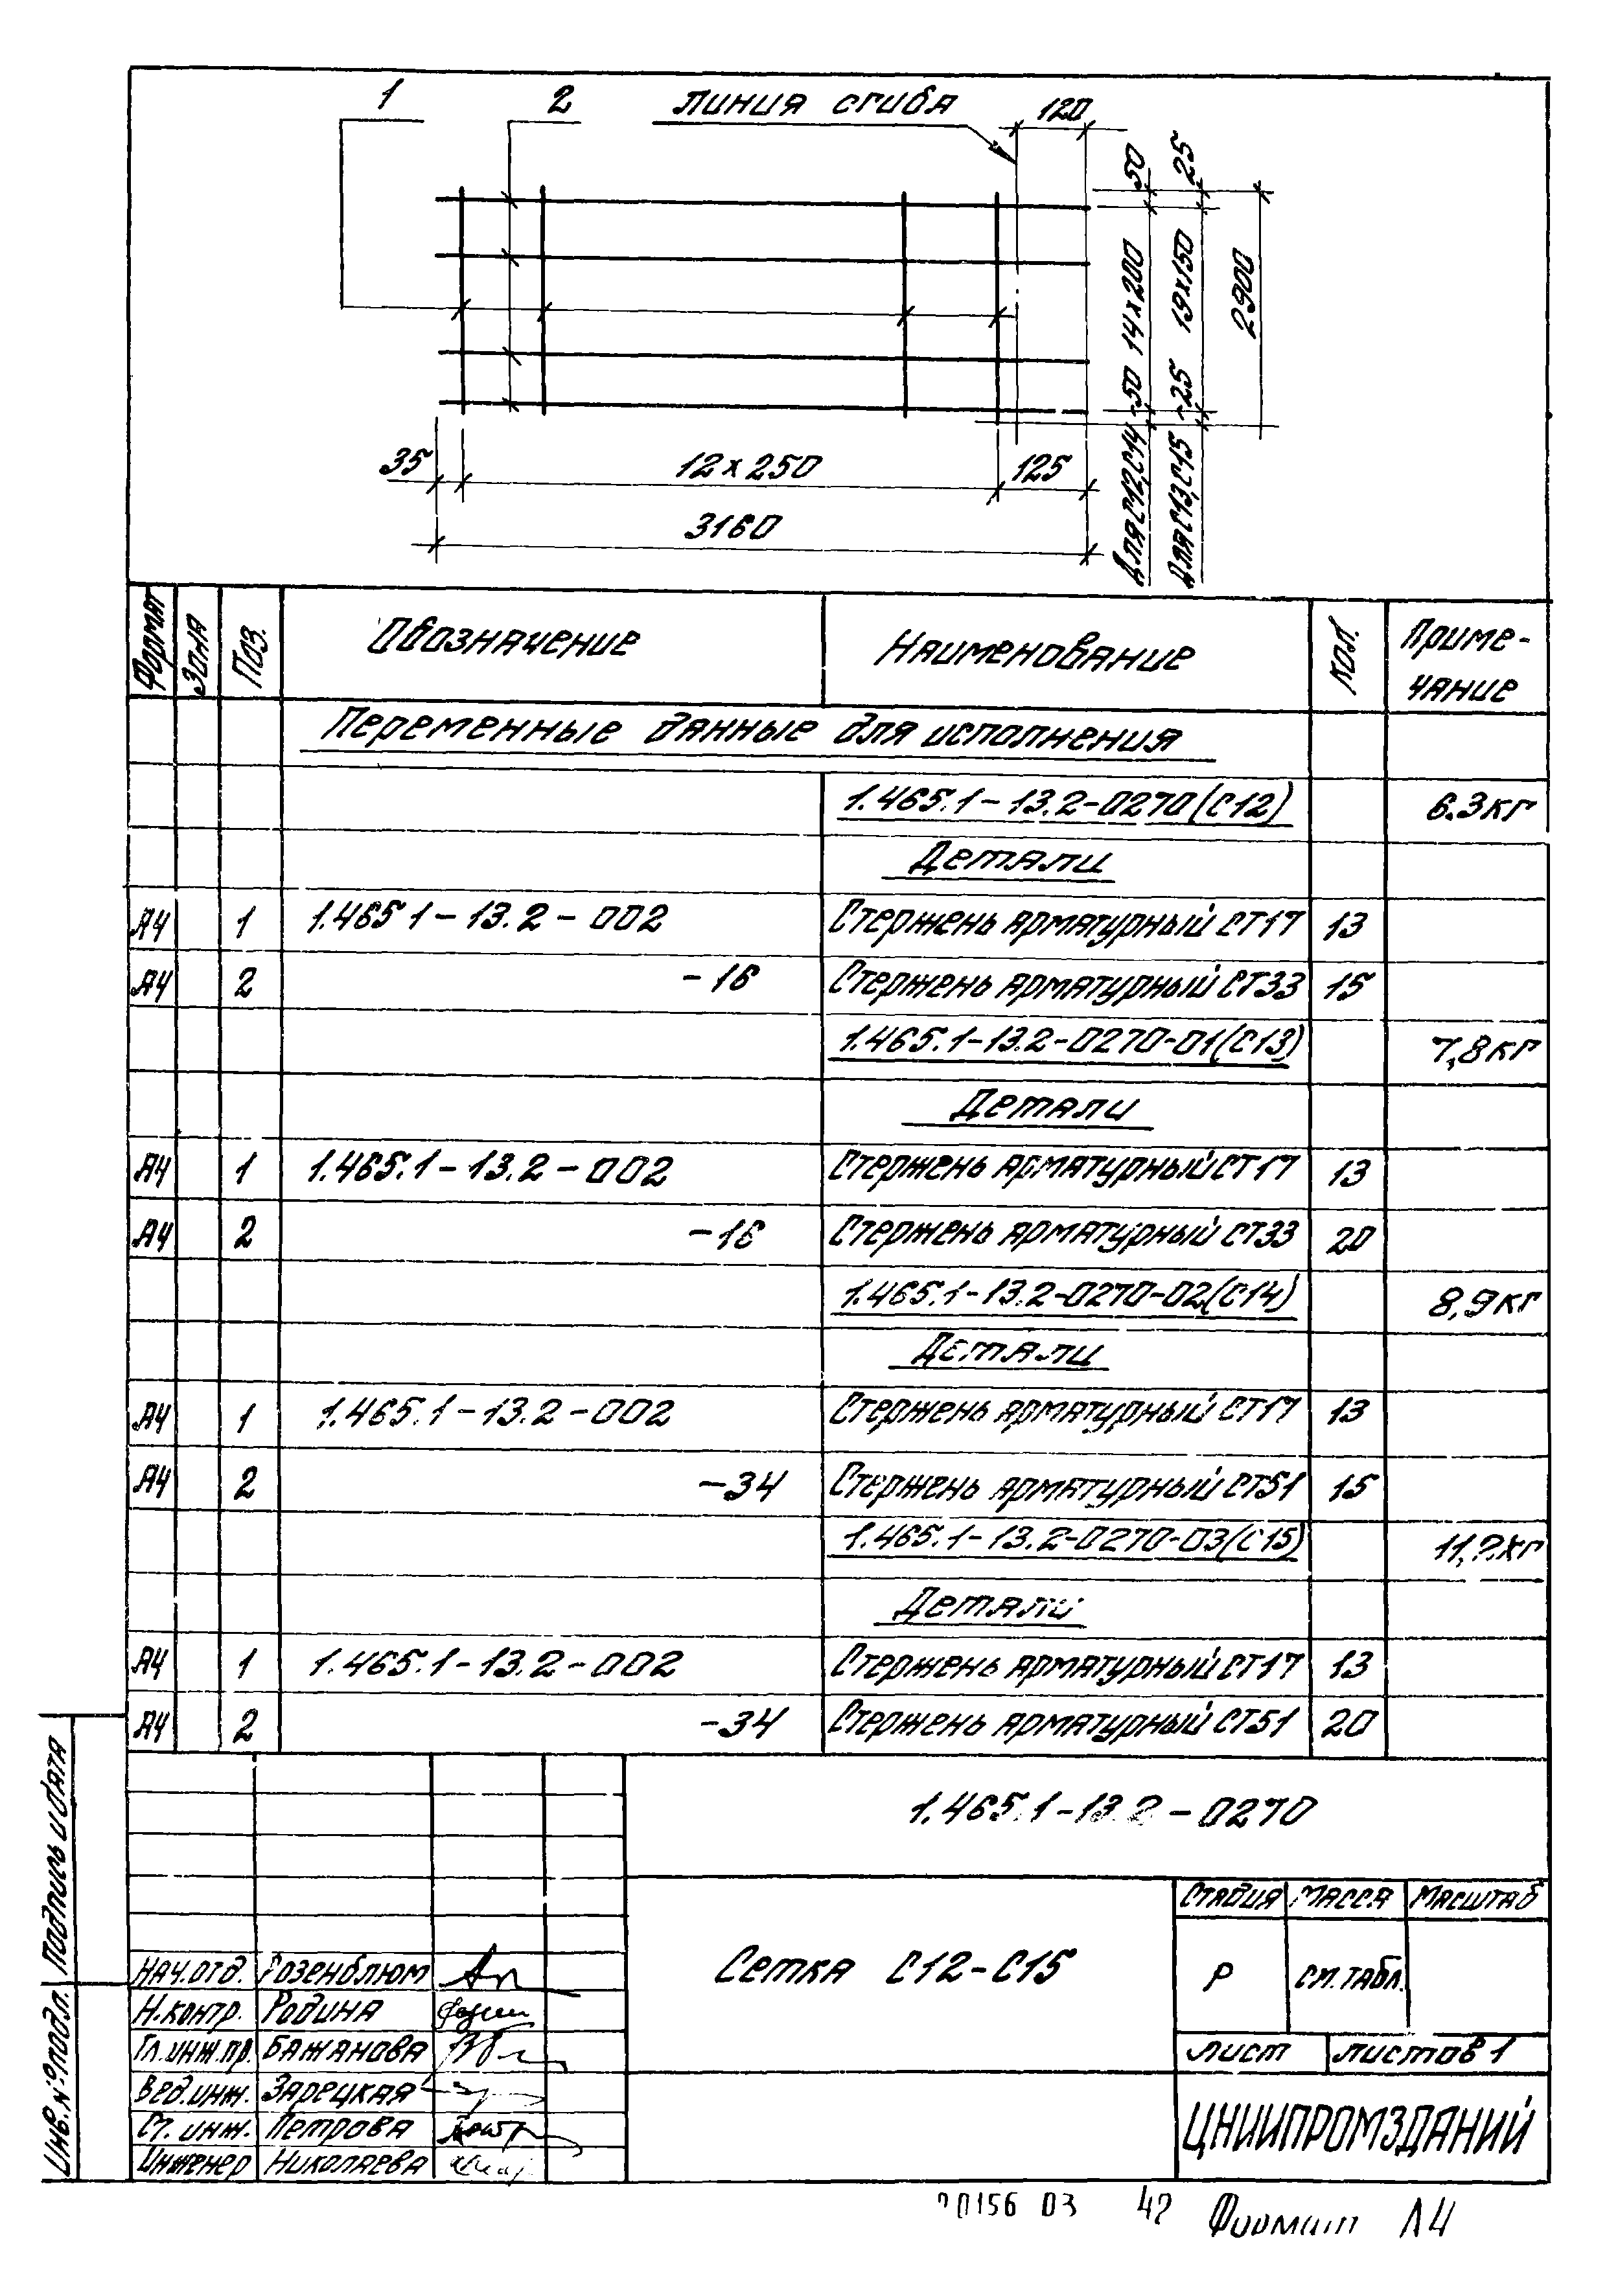 1 2 линия сгиба 120
50 25
14х200 19х150 2900
50 25
Для С12,С14 Для С13,С15
35 12 х 250 125
3160
Формат Зона Поз. Обозначение Наименование Кол. Приме-
чание
Переменные данные для исполнения
1.465.1-13.2-0270 (С12) 6.3кг
Детали
А4 1 1.465 1-13.2-002 Стержень арматурный СТ17 13
А4 2 -16 Стержень арматурный СТ33 15
1.465.1-13.2-0270-01(С13) 7,8кг
Детали
А4 1 1.465.1-13.2-002 Стержень арматурный СТ17 13
А4 2 -16 Стержень арматурный СТ33 20
1.465.1-13.2-0270-02(С14) 8,9кг
Детали
А4 1 1.465.1-13.2-002 Стержень арматурный СТ17 13
А4 2 -34 Стержень арматурный СТ51 15
1.465.1-13.2-0270-03(С15)
Детали
А4 1 1.465.1-13.2-002 Стержень арматурный СТ17 13
А4 2 -34 Стержень арматурный СТ51 20
1.465.1-13.2-0270
Сетка С12-С15
Стадия Масса Масштаб
Р см.табл.
Лист Листов 1
ЦНИИПРОМЗДАНИЙ
Нач.отд. Розенблюм
Н.контр. Родина
Гл.инж.пр. Бажанова
Вед.инж. Зарецкая
Ст. инж. Петрова
Инженер Николаева
Инв.№подл. Подпись и дата
0156 03 42 Формат А4